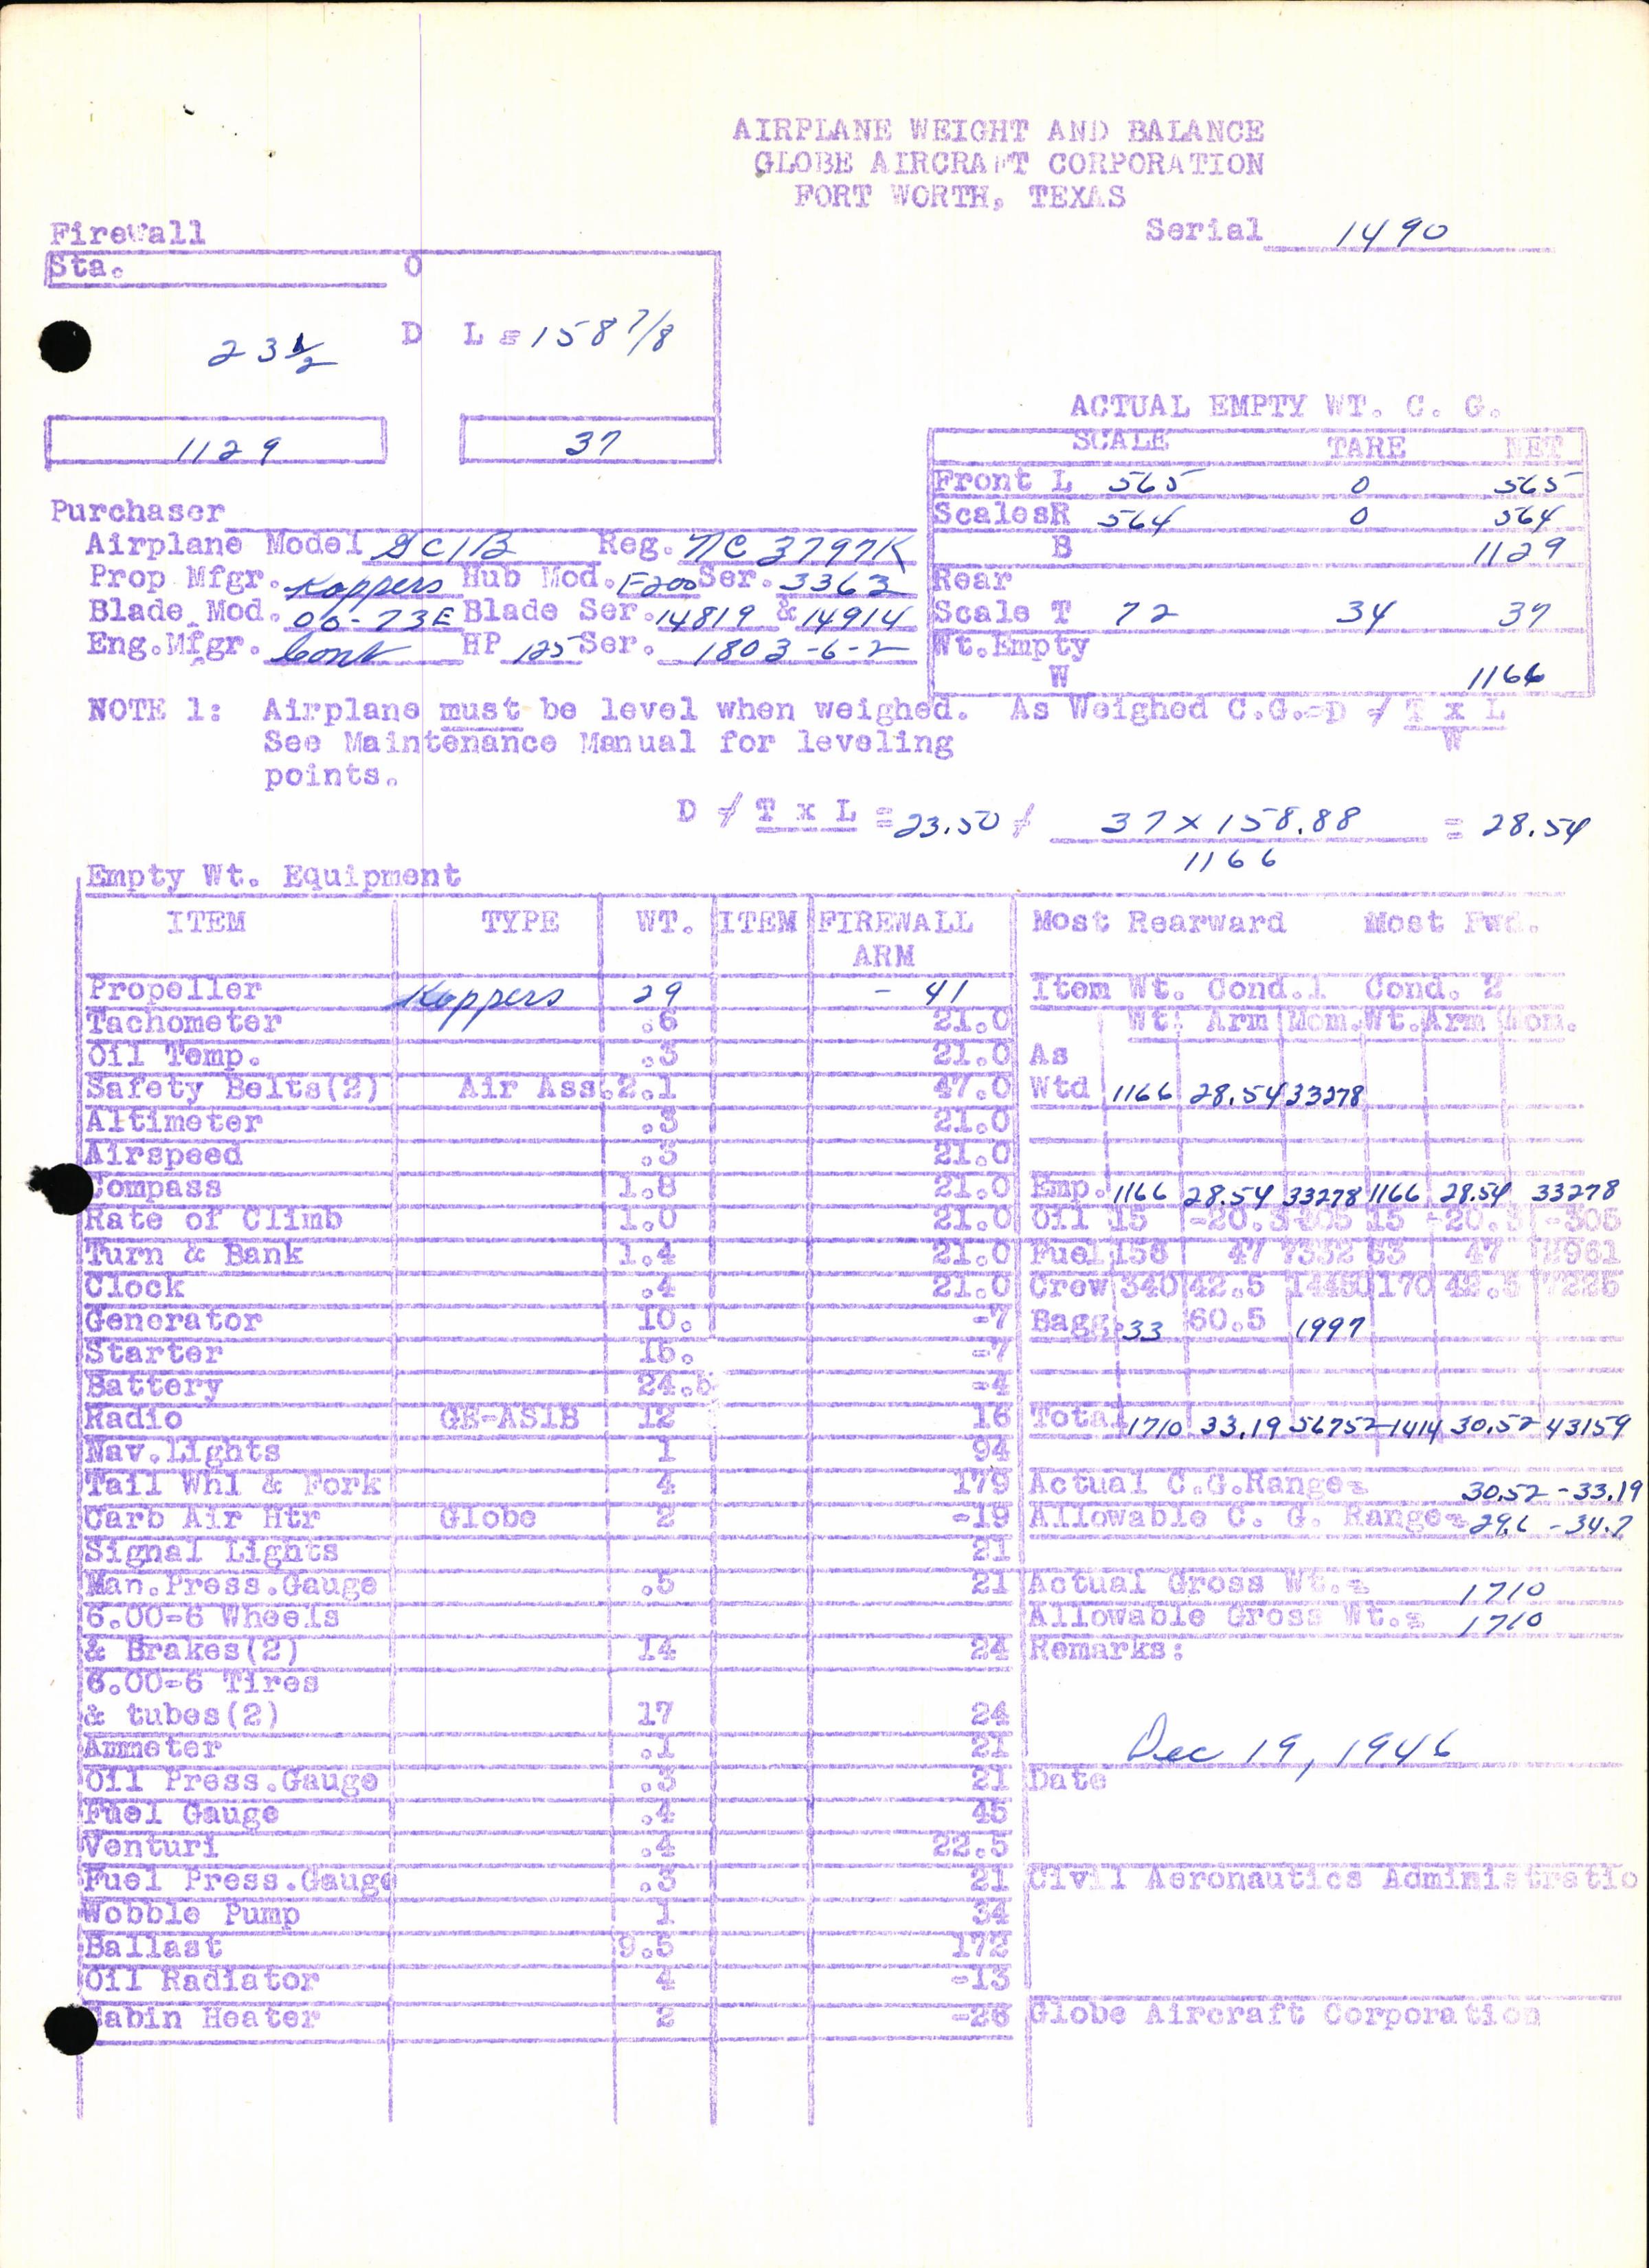 AIRPLANE WEIGHT AND BALANCE
GLOBE AIRCRAFT CORPORATION
FORT WORTH, TEXAS
Serial 1490
Firewall
Sta. 0
23 1/2 D L = 158 7/8
1129 37
ACTUAL EMPTY WT. C. G.
SCALE TARE NET
Front L 565 0 565
ScalesR 564 0 564
B 1129
Rear
Scale T 72 34 37
Wt.Empty
W 1166
Purchaser
Airplane Model GC1B Reg. NC 3797K
Prop Mfgr. Koppers Hub Mod. F200 Ser. 3363
Blade Mod. 06-73E Blade Ser. 14819 & 14914
Eng.Mfgr. Cont HP 125 Ser. 1803-6-2
NOTE 1: Airplane must be level when weighed. As Weighed C.G.=D ≠ T x L
W
See Maintenance Manual for leveling
points.
D ≠ T x L = 23.50 / 37 x 158.88 = 28.54
1166
Empty Wt. Equipment
ITEM TYPE WT. ITEM FIREWALL
ARM
Propeller Koppers 29 - 41
Tachometer .6 21.0
Oil Temp. .3 21.0
Safety Belts(2) Air Ass. 2.1 47.0
Altimeter .3 21.0
Airspeed .3 21.0
Compass 1.8 21.0
Rate of Climb 1.0 21.0
Turn & Bank 1.4 21.0
Clock .4 21.0
Generator 10. -7
Starter 15. -7
Battery 24.5 -4
Radio GE-AS1B 12 16
Nav.Lights 1 94
Tail Whl & Fork 4 179
Carb Air Htr Globe 2 -19
Signal Lights 21
Man.Press.Gauge .5 21
6.00-6 Wheels
& Brakes(2) 14 24
6.00-6 Tires
& tubes(2) 17 24
Ammeter .1 21
Oil Press.Gauge .3 21
Fuel Gauge .4 45
Venturi .4 22.5
Fuel Press.Gauge .3 21
Wobble Pump 1 34
Ballast 9.5 172
Oil Radiator 4 -13
Cabin Heater 2 -26
Most Rearward Most Fwd.
Item Wt. Cond.1 Cond. 2
Wt. Arm Mom. Wt. Arm Mom.
As
Wtd 1166 28.54 33278
Emp. 1166 28.54 33278 1166 28.54 33278
Oil 15 -20.3 -305 15 -20.3 -305
Fuel 156 47 7332 63 47 2961
Crew 340 42.5 14450 170 42.5 7225
Bagg. 33 60.5 1997
Total 1710 33.19 56752 1414 30.52 43159
Actual C.G.Range= 30.52 - 33.19
Allowable C. G. Range= 29.6 - 34.7
Actual Gross Wt.= 1710
Allowable Gross Wt.= 1710
Remarks:
Dec 19, 1946
Date
Civil Aeronautics Administratio
Globe Aircraft Corporation